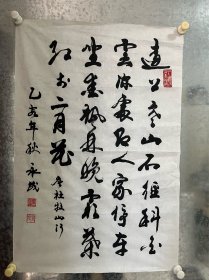 遠上寒山石徑斜白
雲深處有人家停車
坐愛楓林晚霜葉
紅於二月花 唐杜牧山行
乙亥年秋